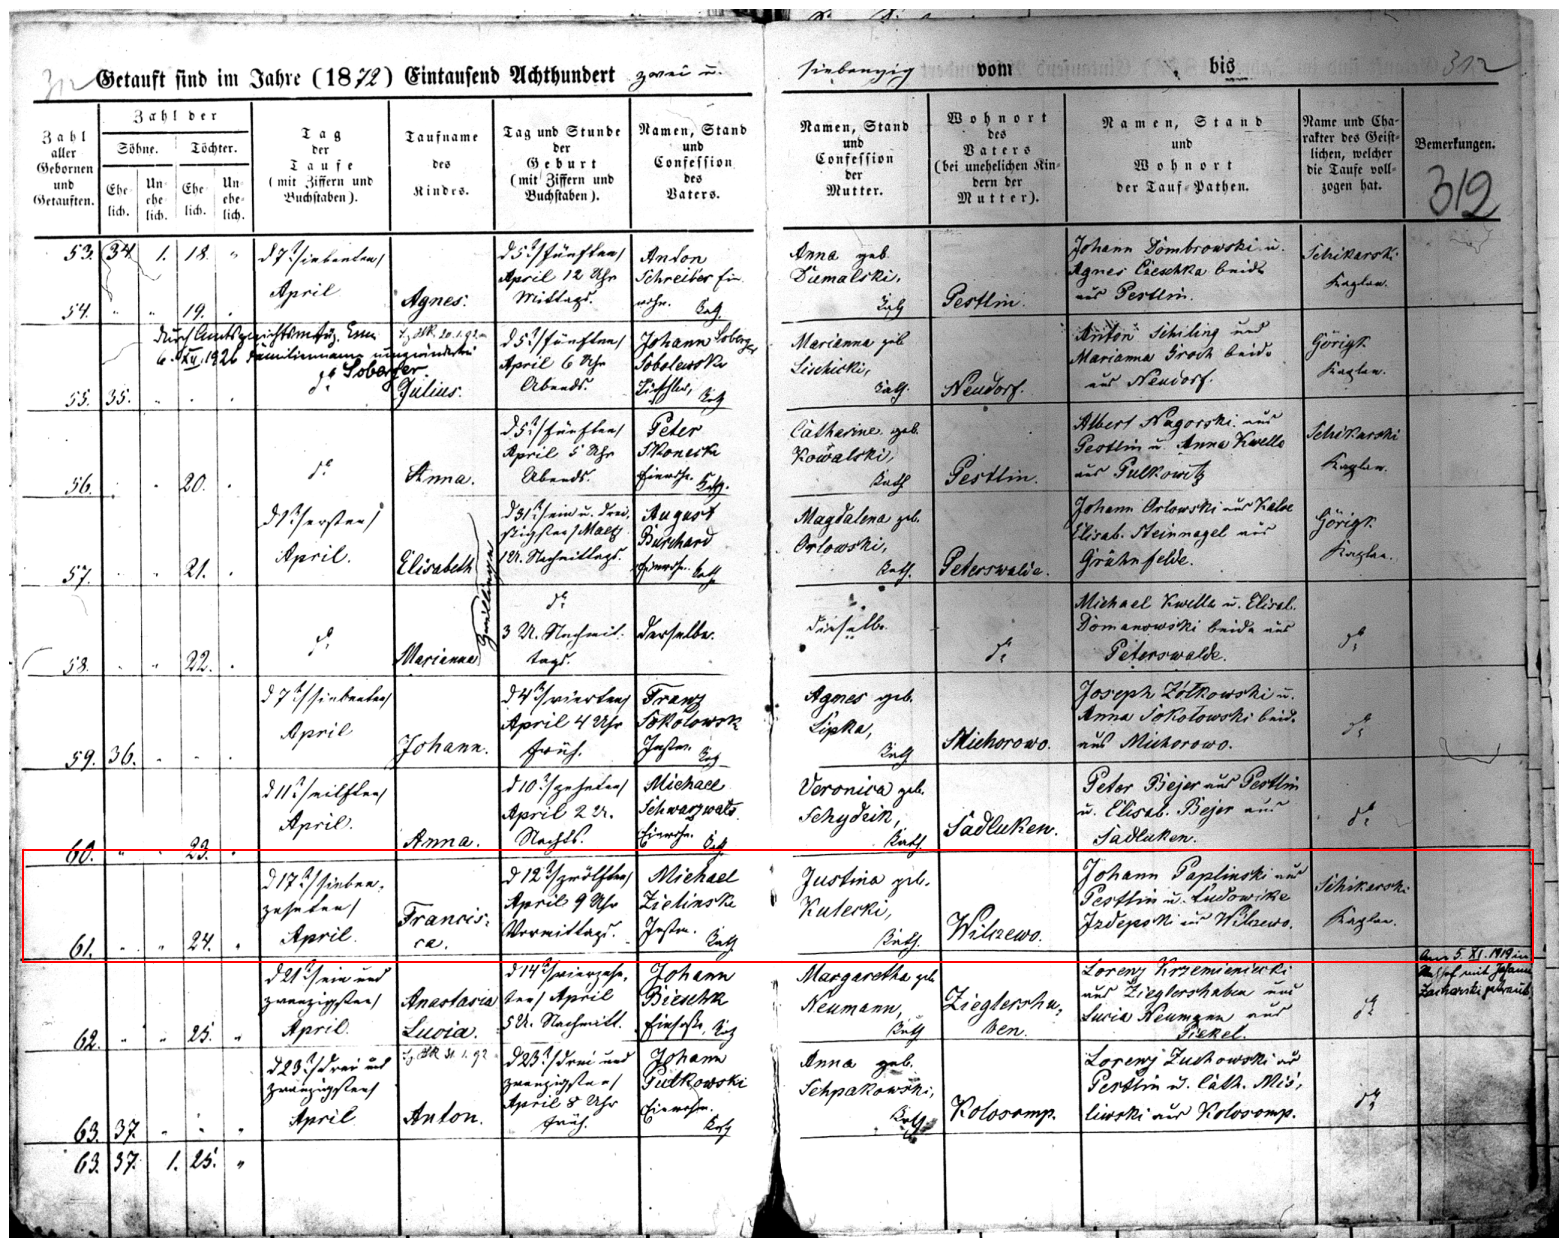 312
Getauft sind im Jahre (1872) Eintausend Achthundert zwei u. siebenzig vom bis
312
Zahl aller Gebornen und Getauften.
Zahl der
Söhne. Töchter.
Eheлich. Unehelich. Ehelich. Unehelich.
Tag der Taufe (mit Ziffern und Buchstaben).
Taufname des Kindes.
Tag und Stunde der Geburt (mit Ziffern und Buchstaben).
Namen, Stand und Confession des Vaters.
Namen, Stand und Confession der Mutter.
Wohnort des Vaters (bei unehelichen Kindern der Mutter).
Namen, Stand und Wohnort der Tauf-Pathen.
Name und Charakter des Geistlichen, welcher die Taufe vollzogen hat.
Bemerkungen.
312
53. 34. 1. 18. "
54. " " 19. "
d 7t/siebenten/
April
Agnes.
d 5t/fünften/
April 12 Uhr
Mittags.
Anton
Schreiber Ein
wohn. Kath
Anna geb
Dumalski,
Kath
Pestlin.
Johann Dombrowski u.
Agnes Cieschka beide
aus Pestlin.
Schikarski
Kaplan.
6. XII. 1926 Familienname
Soberger.
55. 35.
do
Julius.
d 5t/fünften/
April 6 Uhr
Abends.
Johann Soberger
Sobolewski
Kath
Marianna geb
Kath.
Neudorf.
Anton Schiling und
Marianna Groch beide
aus Neudorf.
Görigk
Kaplan.
56. 20.
do
Anna.
d 5t/fünften/
April 5 Uhr
Abends.
Peter
Skonecka
Einwohn. Kath.
Catharine geb.
Kowalski,
Kath
Pestlin.
Albert Nagorski aus
Pestlin u. Anna Kwella
aus Pulkowitz
Schikarski
Kaplan.
57. 21.
d 1t/ersten/
April.
Elisabeth
Zwillinge
d 31t/ein u. drei
ßigsten/ Maerz
1 U. Nachmittags.
August
Burchard
Einwohn. Kath
Magdalena geb.
Orlowski,
Kath.
Peterswalde.
Johann Orlowski aus Kalve
Elisab. Steinnagel aus
Grünhfelde.
Görigk
Kaplan.
58. 22.
do
Marianna
do
3 U. Nachmit-
tags.
derselbe.
dieselbe.
do
Michael Kwella u. Elisab.
Domanowski beide aus
Peterswalde.
do
59. 36.
d 7t/siebenten/
April
Johann.
d 4t/vierten/
April 4 Uhr
früh.
Franz
Sokolowsk
Instm. Kath
Agnes geb.
Lipka,
Kath
Michorowo.
Joseph Zolkowski u.
Anna Sokolowski beide
aus Michorowo.
do
60. " " 23. "
d 11t/eilften/
April.
Anna.
d 10t/zehnten/
April 2 U.
Nachts.
Michael
Schwarzwald
Einwohn. Kath
Veronica geb.
Schydzik,
Kath
Sadluken.
Peter Bejer aus Pestlin
u. Elisab. Bejer aus
Sadluken.
do
61. " " 24. "
d 17t/sieben-
zehnten/
April.
Francis-
ca.
d 12t/zwölften/
April 9 Uhr
Vormittags.
Michael
Zielinska
Instm. Kath
Justina geb.
Kutecki,
Kath.
Wilczewo.
Johann Paplinski aus
Pestlin u. Ludowike
Izdepski aus Wilczewo.
Schikarski
Kaplan.
62. " " 25. "
d 21t/ein und
zwanzigsten/
April.
Anastasia
Lucia.
d 14t/vierzehn-
ten/ April
5 U. Nachmitt.
Johann
Bieschk
Einsaße, Kath
Margaretha geb
Neumann,
Kath
Zieglershu-
ben.
Lorenz Krzemieniecki
aus Zieglershuben und
Lucia Neumann aus
Piekel.
do
Am 5. XI. 1919 in
mit Johann
Zacharski getraut
63. 37. " " "
d 23t/drei und
zwanzigsten/
April
Anton.
d 23t/drei und
zwanzigsten/
April 8 Uhr
früh.
Johann
Pulkowski
Einwohn.
Kath
Anna geb.
Schpakowski,
Kath.
Kolosomp.
Lorenz Zuchowski aus
Pestlin u. Cath. Mis-
liwski aus Kolosomp.
do
63. 37. 1. 25. "